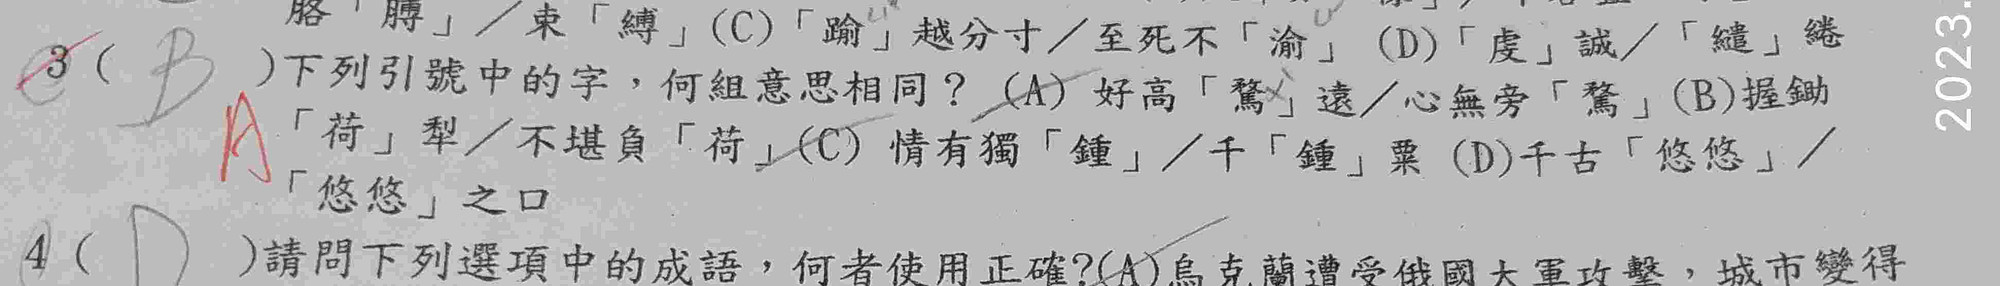 胳「膊」／束「縛」(C)「踰」越分寸／至死不「渝」(D)「虔」誠／「繾」綣
3(B)下列引號中的字,何組意思相同?(A)好高「騖」遠／心無旁「騖」(B)握鋤
A「荷」犁／不堪負「荷」(C)情有獨「鍾」／千「鍾」粟(D)千古「悠悠」／
「悠悠」之口
4(D)請問下列選項中的成語,何者使用正確?(A)烏克蘭遭受俄國大軍攻擊,城市變得
2023.